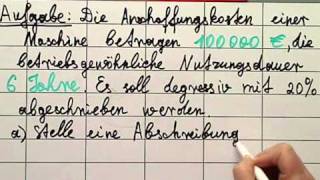 Aufgabe: Die Anschaffungskosten einer
Maschine betragen 100000 €, die
betriebsgewöhnliche Nutzungsdauer
6 Jahre. Es soll degressiv mit 20%
abgeschrieben werden.
a) Stelle eine Abschreibung